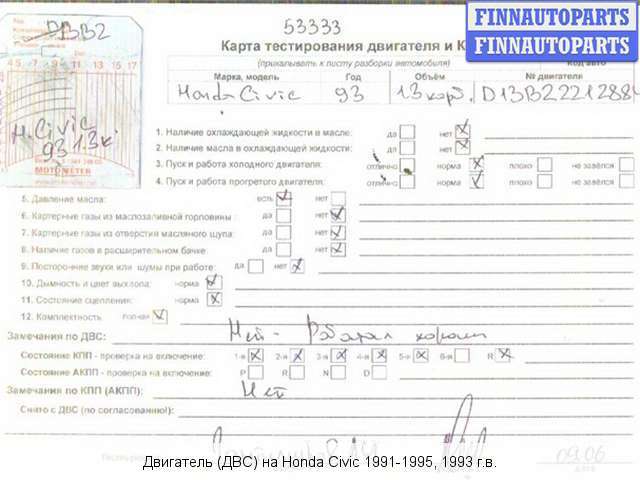 53333
FINNAUTOPARTS
FINNAUTOPARTS
DBB2
4 5 7 9 11 13 15 17
H. Civic
93 1.3 к.
MOTOMETER
Карта тестирования двигателя и К
(прикалывать к листу разборки автомобиля)
Код авто
Марка, модель Год Объём № двигателя
Honda Civic 93 1.3 карб. D13B2221288
1. Наличие охлаждающей жидкости в масле: да нет
2. Наличие масла в охлаждающей жидкости: да нет
3. Пуск и работа холодного двигателя: отлично норма плохо не завёлся
4. Пуск и работа прогретого двигателя: отлично норма плохо не завёлся
5. Давление масла: есть нет
6. Картерные газы из маслозаливной горловины: да нет
7. Картерные газы из отверстия масляного щупа: да нет
8. Наличие газов в расширительном бачке: да нет
9. Посторонние звуки или шумы при работе: да нет
10. Дымность и цвет выхлопа: норма
11. Состояние сцепления: норма
12. Комплектность полная
Замечания по ДВС: Нет - Работал хорошо
Состояние КПП - проверка на включение: 1-я 2-я 3-я 4-я 5-я 6-я R
Состояние АКПП - проверка на включение: P R N D
Замечания по КПП (АКПП): Нет
Снято с ДВС (по согласованию!):
09.06
Двигатель (ДВС) на Honda Civic 1991-1995, 1993 г.в.